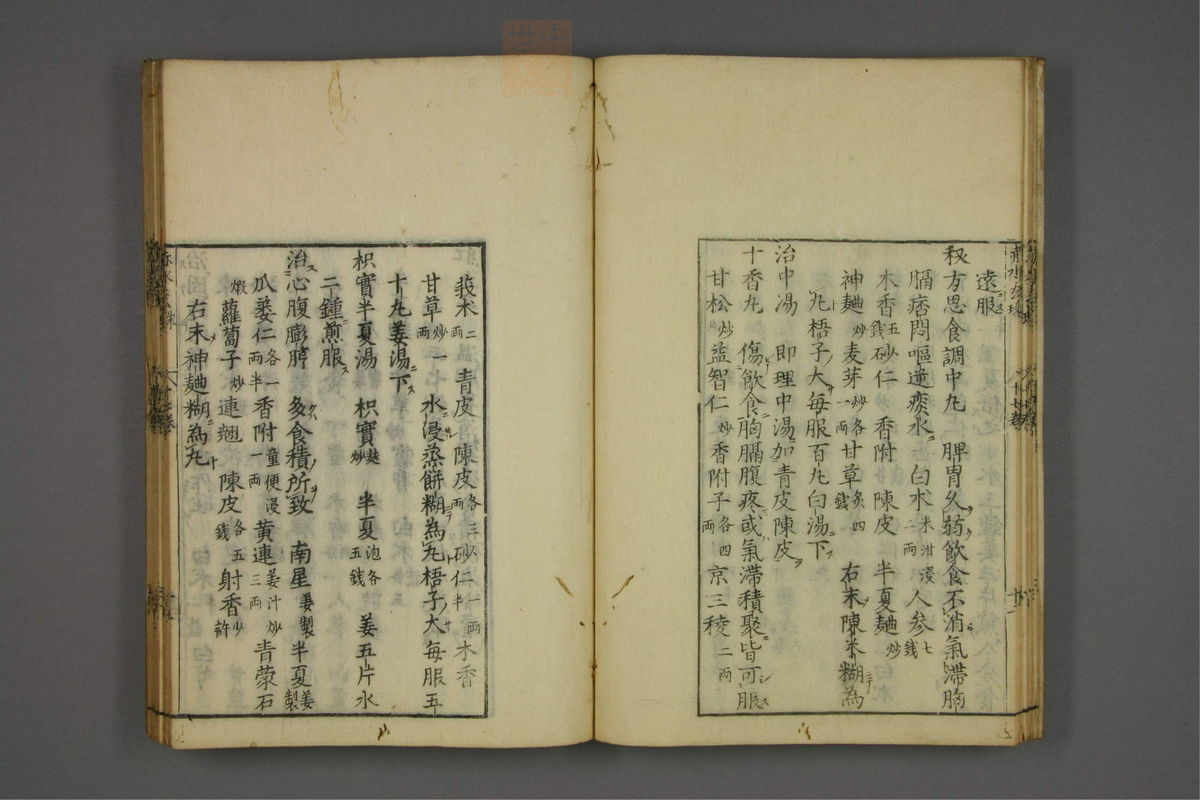 遠服
秘方思食調中丸　脾胃久弱飲食不消氣滯胸
膈痞悶嘔逆痰水　白术米泔浸二両人参七銭
木香五銭砂仁　香附　陳皮　半夏麯炒
神麯炒麦芽炒各一両甘草炙四銭　右末陳米糊為
丸梧子大毎服百丸白湯下
治中湯　即理中湯加青皮陳皮
十香丸　傷飲食胸膈腹疼或氣滯積聚皆可服
甘松炒益智仁炒香附子各四両京三稜二両
莪术二両　青皮　陳皮各三両砂仁一両半木香
甘草炒一両　水浸蒸餅糊為丸梧子大毎服五
十丸姜湯下
枳實半夏湯　枳實麸炒　半夏泡各五銭　姜五片水
二鍾煎服
治心腹膨脝　多食積所致　南星姜製半夏姜製
瓜蔞仁各一両半香附童便浸一両黄連姜汁炒三両青礞石
煅蘿蔔子炒連翹　陳皮各五銭　射香少許
右末神麯糊為丸